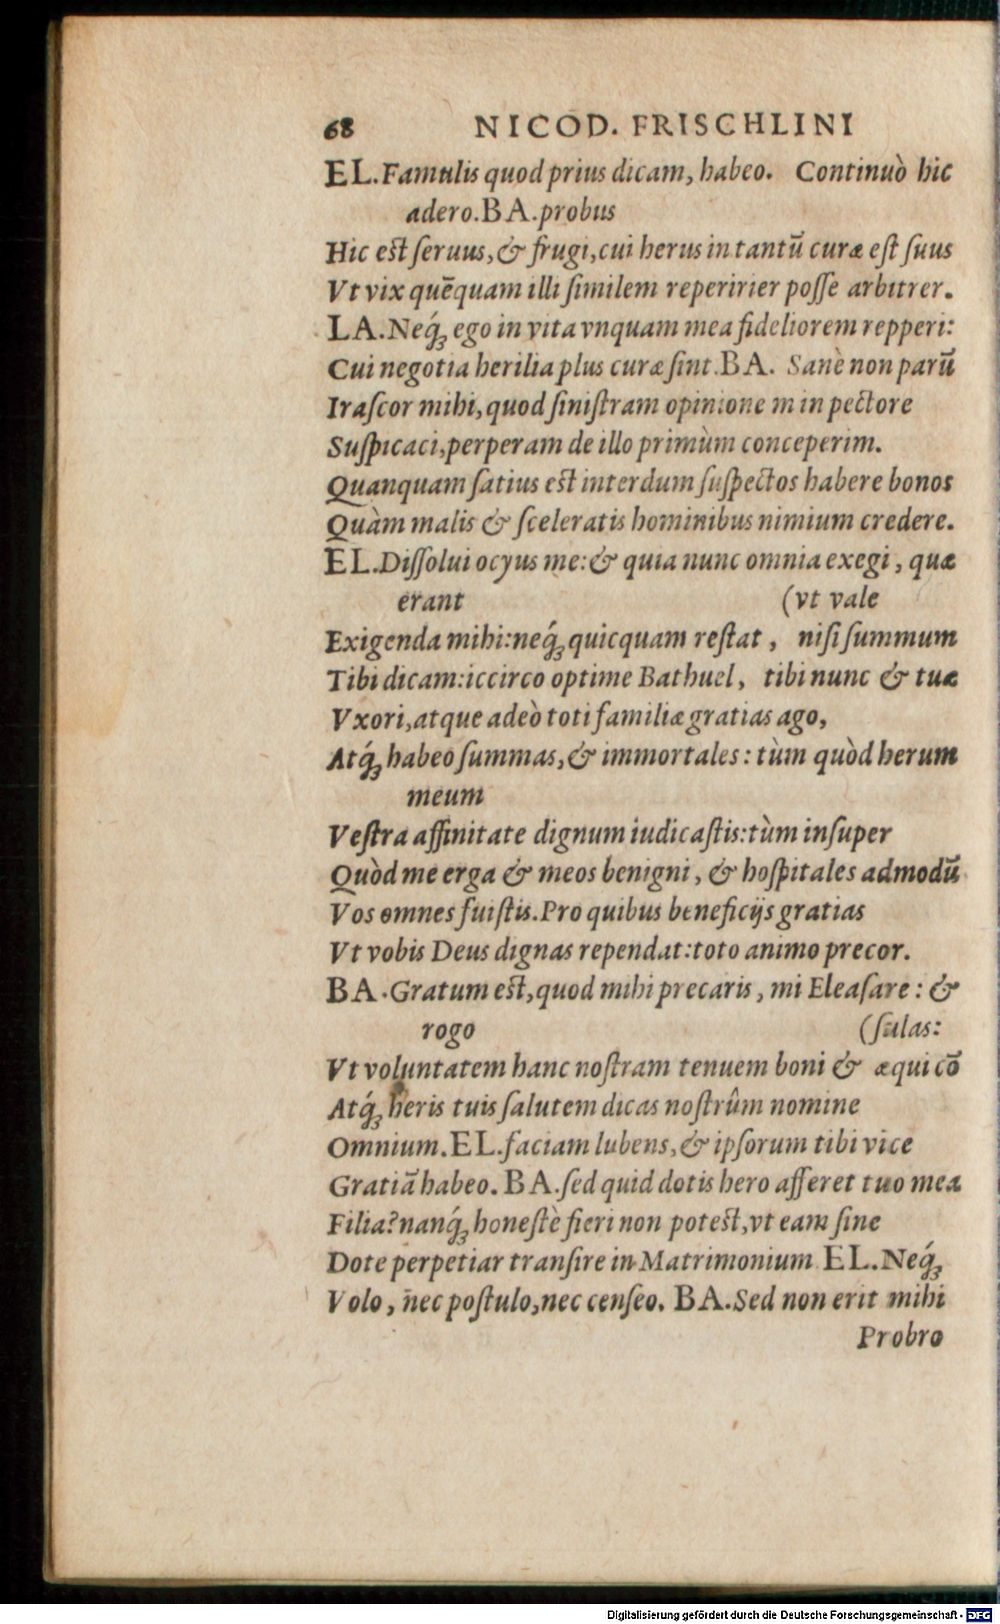 68 NICOD. FRISCHLINI
EL. Famulis quod prius dicam, habeo. Continuò hic
adero. BA. probus
Hic est ſeruus, & frugi, cui herus in tantū curæ eſt ſuus
Vt vix quēquam illi ſimilem reperirier poſſe arbitrer.
LA. Neq́; ego in vita vnquam mea fideliorem repperi:
Cui negotia herilia plus curæ ſint. BA. Sanè non parū
Iraſcor mihi, quod ſiniſtram opinionem in pectore
Suſpicaci, perperam de illo primùm conceperim.
Quanquam ſatius est interdum ſuſpectos habere bonos
Quàm malis & ſceleratis hominibus nimium credere.
EL. Diſſolui ocyus me: & quia nunc omnia exegi, quæ
erant (vt vale
Exigenda mihi: neq́; quicquam reſtat, niſi ſummum
Tibi dicam: iccirco optime Bathuel, tibi nunc & tuæ
Vxori, atque adeò toti familiæ gratias ago,
Atq́; habeo ſummas, & immortales: tùm quòd herum
meum
Veſtra affinitate dignum iudicaſtis: tùm inſuper
Quòd me erga & meos benigni, & hoſpitales admodū
Vos omnes fuiſtis. Pro quibus beneficijs gratias
Vt vobis Deus dignas rependat: toto animo precor.
BA. Gratum est, quod mihi precaris, mi Eleaſare: &
rogo (ſulas:
Vt voluntatem hanc noſtram tenuem boni & æqui cō
Atq́; heris tuis ſalutem dicas noſtrûm nomine
Omnium. EL. faciam lubens, & ipſorum tibi vice
Gratiā habeo. BA. ſed quid dotis hero afferet tuo mea
Filia? nanq́; honeſtè fieri non potest, vt eam ſine
Dote perpetiar tranſire in Matrimonium EL. Neq́;
Volo, nec poſtulo, nec cenſeo. BA. Sed non erit mihi
Probro
Digitalisierung gefördert durch die Deutsche Forschungsgemeinschaft - DFG